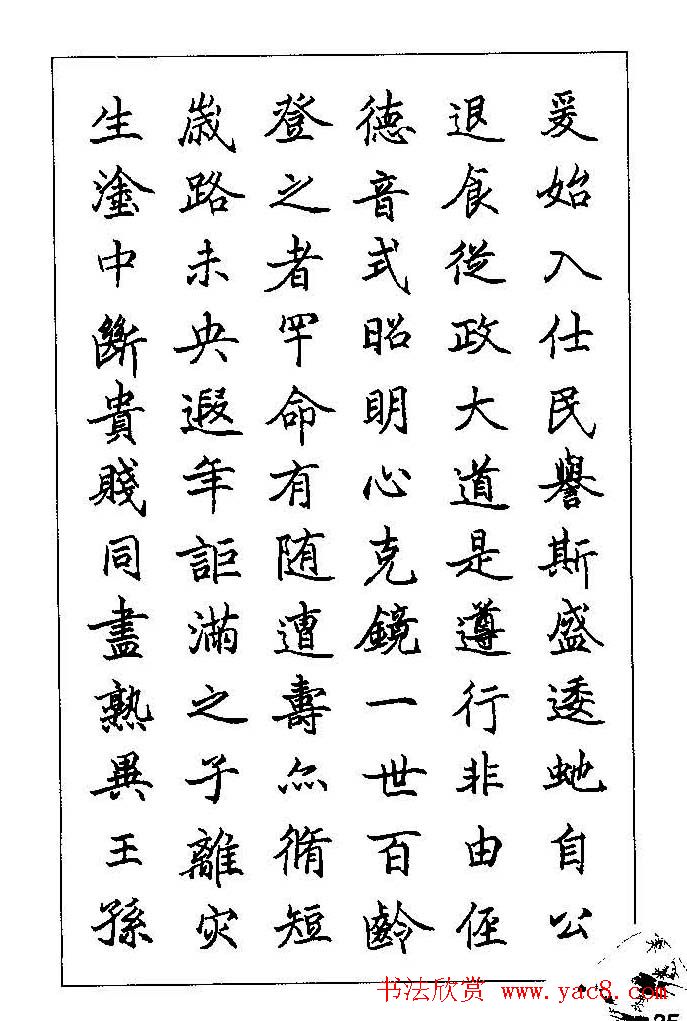 爰始入仕民譽斯盛逶虵自公
退食從政大道是遵行非由徑
德音式昭明心克鏡一世百齡
登之者罕命有随遭壽亦脩短
歲路未央遐年詎滿之子離灾
生塗中斷貴賤同盡熟異王孫
书法欣赏 www.yac8.com
25